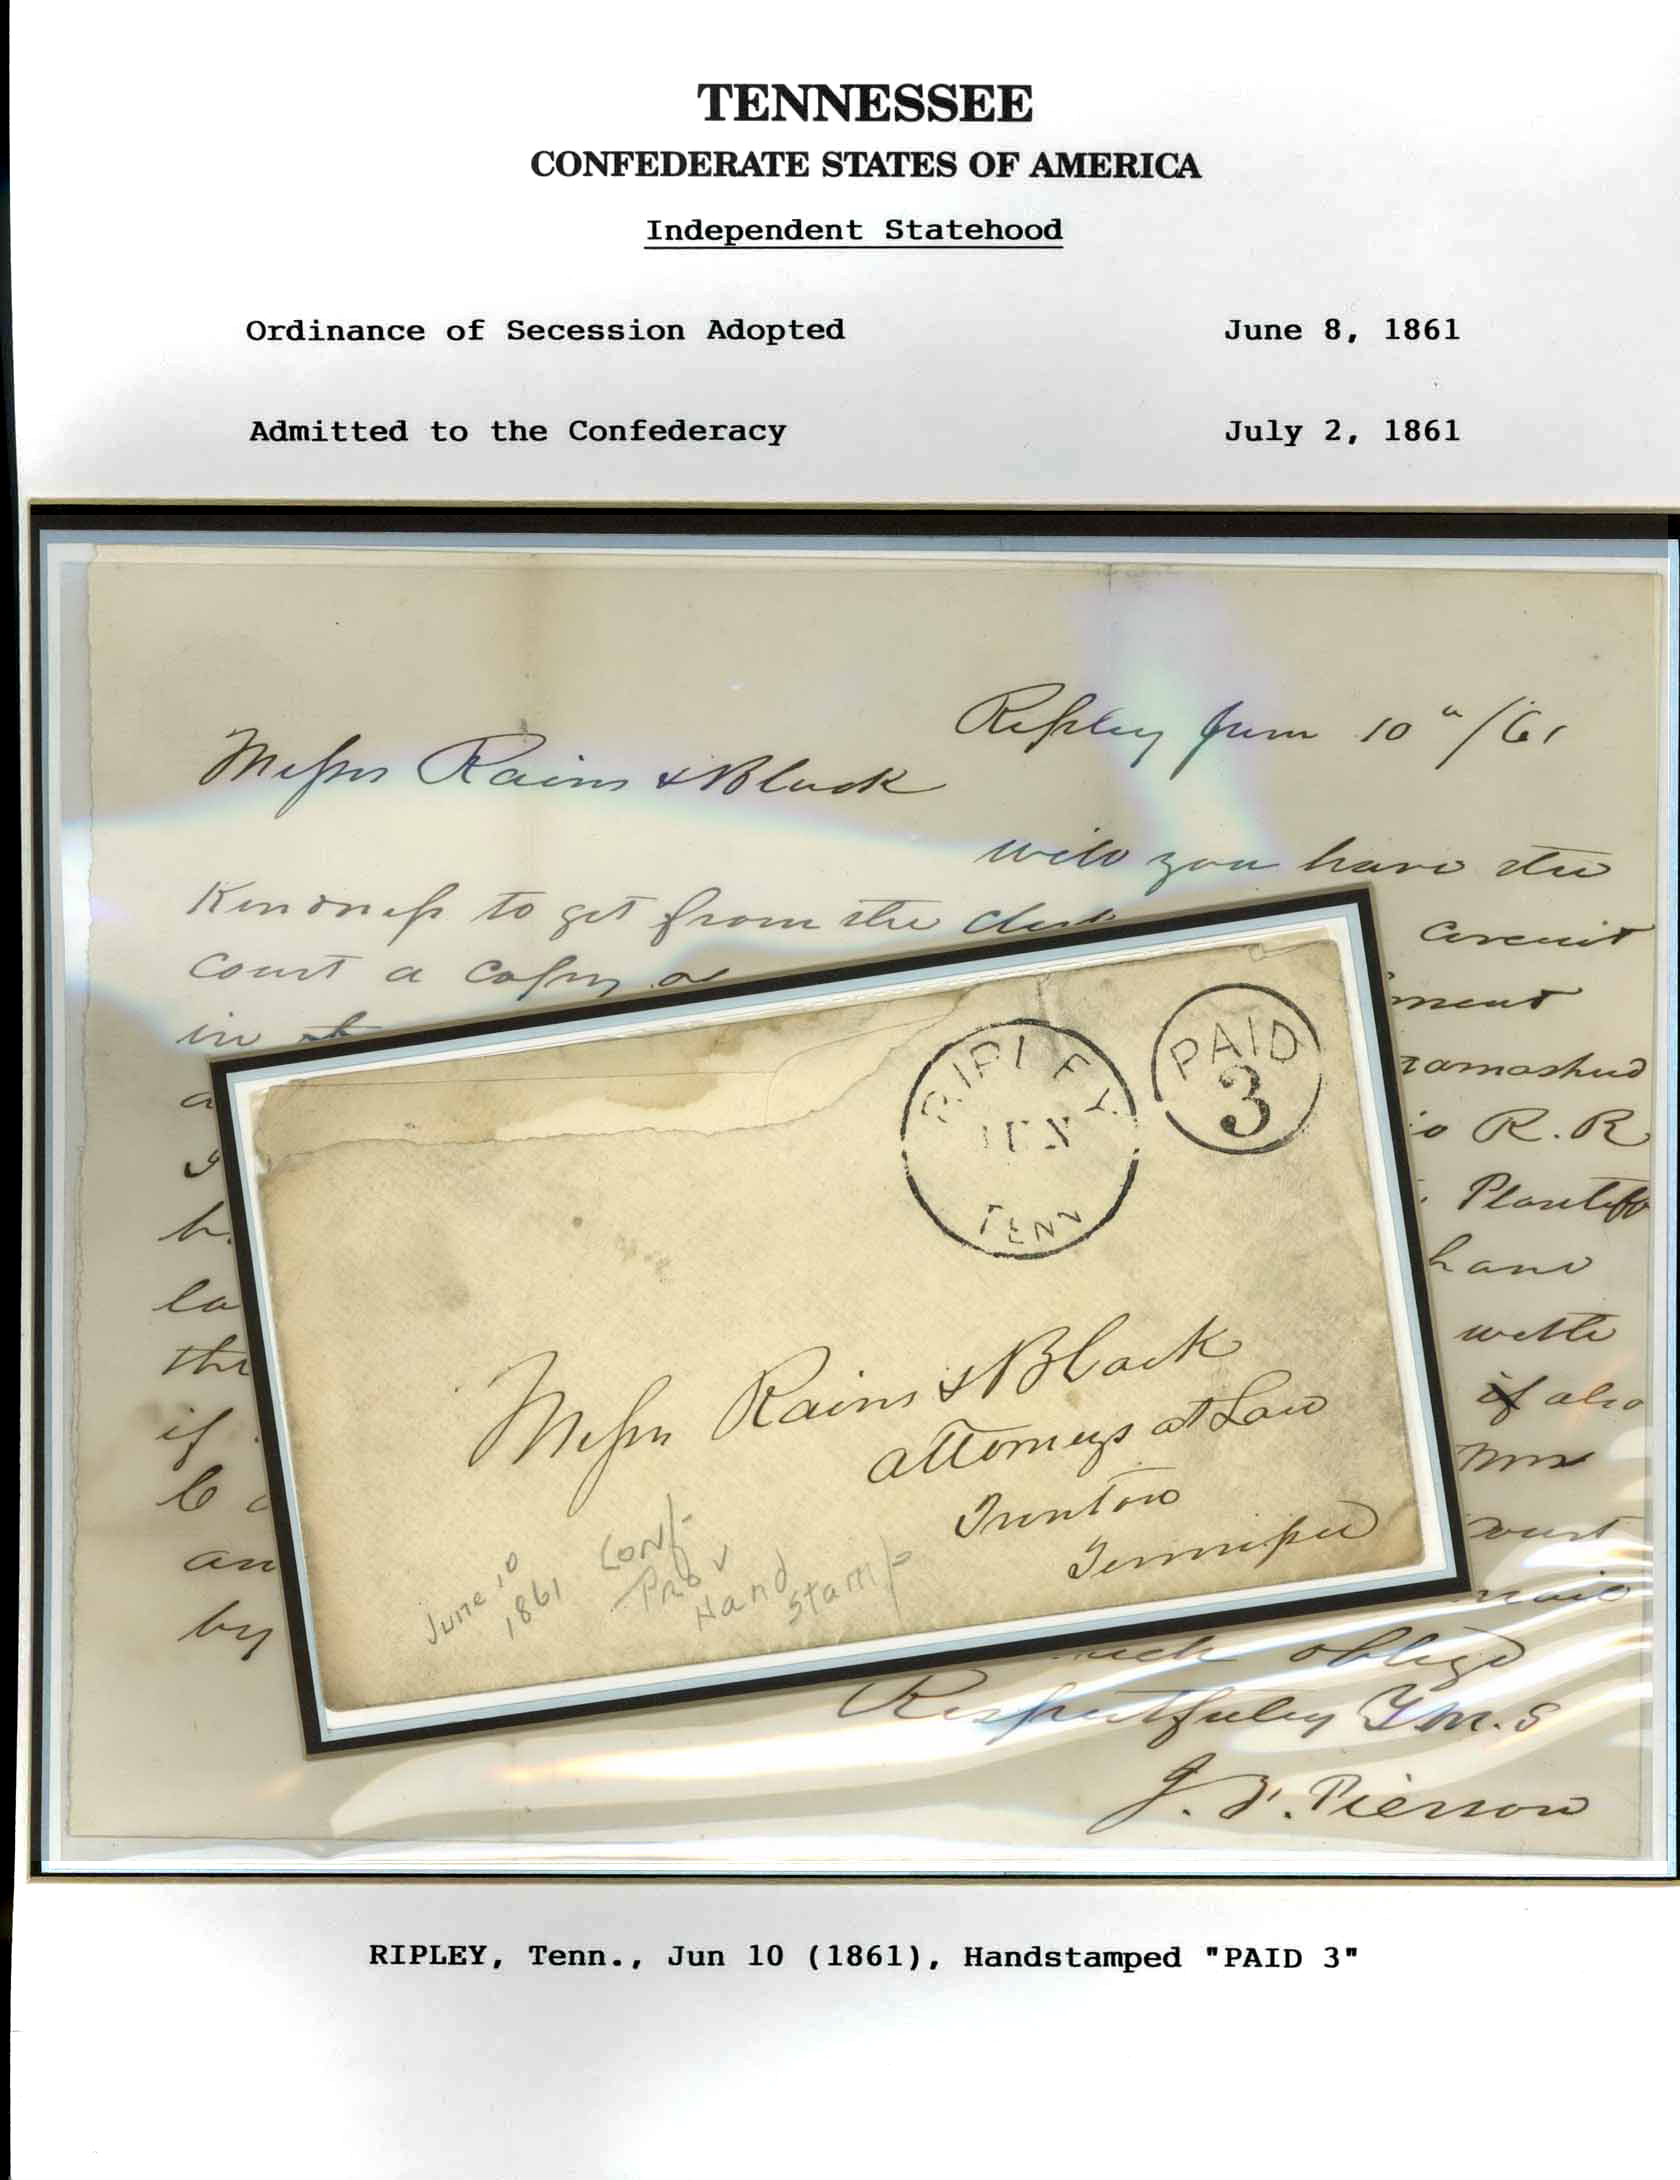 TENNESSEE
CONFEDERATE STATES OF AMERICA
Independent Statehood
Ordinance of Secession Adopted June 8, 1861
Admitted to the Confederacy July 2, 1861
Ripley June 10 /61
Messrs Rains & Black
will you have the
Kindness to get from the clerk
circuit
court a copy
in
ment
a
ramashud
I
R. R
h
Plaintiff
la
hand
thr
with
if
if also
C
Mr
an
court
by
mail
oblige
Respectfuly
J. F. Pierson
RIPLEY
JUN
TENN
PAID
3
Messrs Rains & Black
attorneys at Law
Trenton
Tennessee
June 10
1861
Conf
Prov
Hand
Stamp
RIPLEY, Tenn., Jun 10 (1861), Handstamped "PAID 3"